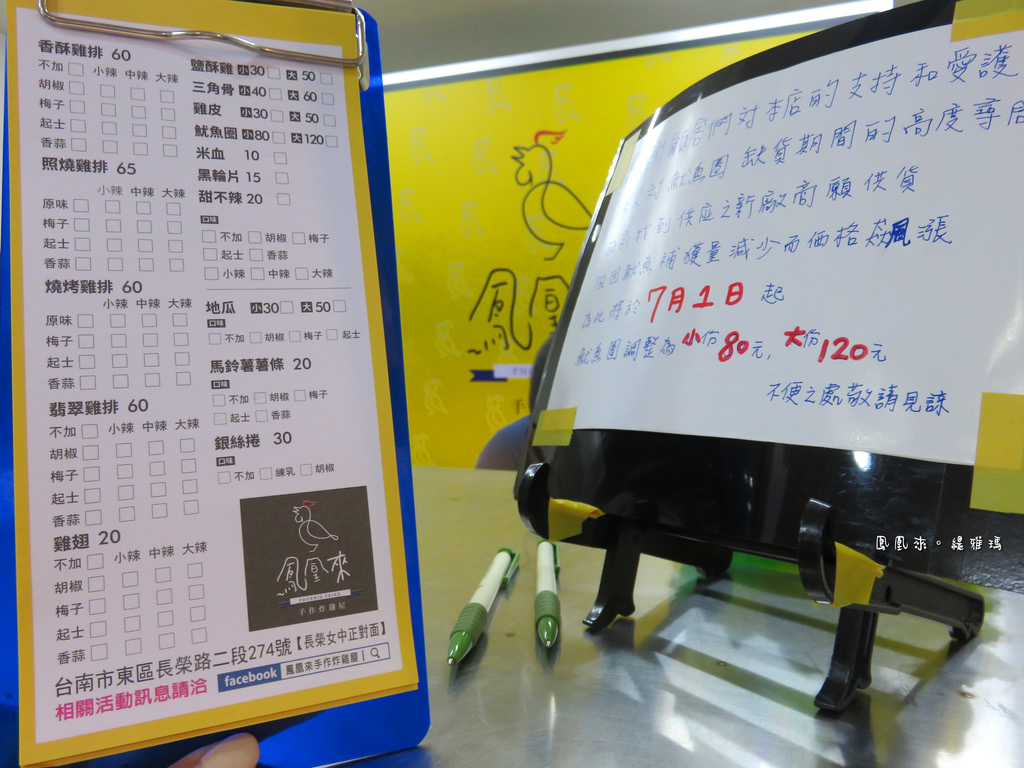 香酥雞排 60
小辣 中辣 大辣
不加
胡椒
梅子
起士
香蒜
照燒雞排 65
小辣 中辣 大辣
原味
梅子
起士
香蒜
燒烤雞排 60
小辣 中辣 大辣
原味
胡椒
起士
香蒜
翡翠雞排 60
不加 小辣 中辣 大辣
胡椒
梅子
起士
香蒜
雞翅 20
不加 小辣 中辣 大辣
胡椒
梅子
起士
香蒜
鹽酥雞 小30 大50
三角骨 小40 大60
雞皮 小30 大50
魷魚圈 小80 大120
米血 10
黑輪片 15
甜不辣 20
口味
不加 胡椒 梅子
起士 香蒜
小辣 中辣 大辣
地瓜 小30 大50
口味
不加 胡椒 梅子 起士
馬鈴薯薯條 20
口味
不加 胡椒 梅子
起士 香蒜
銀絲捲 30
口味
不加 煉乳 胡椒
鳳凰來
PHOENIX FRIED
手作炸雞屋
台南市東區長榮路二段274號【長榮女中正對面】
相關活動訊息請洽 facebook 鳳凰來手作炸雞屋
鳳凰
顧客們對本店的支持和愛護
魷魚圈 缺貨期間的高度尋
找到供應之新廠商願供貨
因魷魚補獲量減少而價格飆漲
為此將於 7月1日 起
魷魚圈調整為 小份80元, 大份120元
不便之處敬請見諒
鳳凰來。緹雅瑪